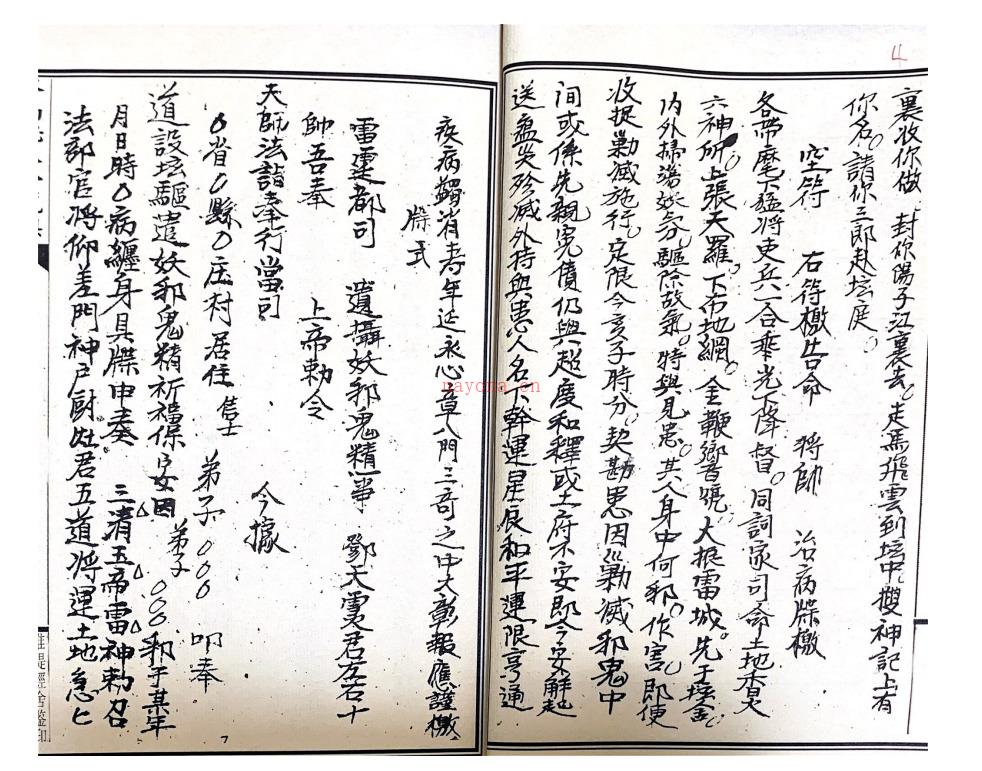 4
裏收你做 封你陽子江裏去 走馬飛雲到坛中 搜神記上有
你名 請你三郎赴坛庭
空符 右符檄告命 將帥 治病牒檄
各帶麾下猛將吏兵 一合乘光下降督 同詞家司命土地香火
六神所上張天羅 下布地網 金鞭響號 大振雷城 先于坛舍
內外掃蕩妖氛 驅除故氣 特與見患 其人身中何邪 作害即便
收捉剿滅施行 定限今亥子時分 契勘患因剿滅邪鬼中
間或係先親冤債仍與超度和釋或土府不安即令安解起
送瘟災殄滅外持與患人名下幹運星辰和平運限亨通
疾病蠲消寿年延永心章八門三奇之中大彰報應謹檄
牒式
雷霆都司 遣攝妖邪鬼精事 鄧天君左右十
帥 吾奉 上帝勅令
天師法旨奉行當司 今據
0省0縣0庄村居住 信士 弟子000 叩奉
道設坛驅遣妖邪鬼精祈福保安因 弟子000 邪于某年
月日時0病纏身具牒申奏 三清五帝雷神勅召
法部官将仰差門神户厨灶君五道将運土地急匕
准提經舍鉴印
nayona.cn